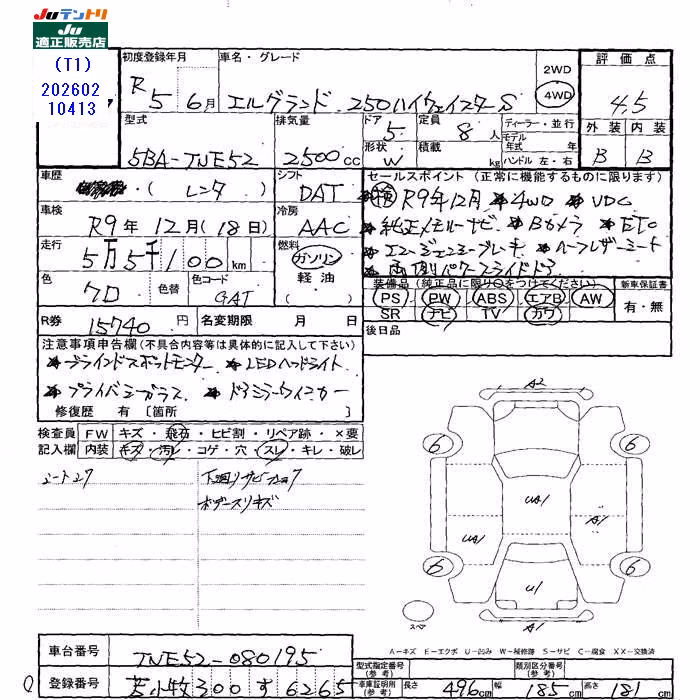 JUテントリ
JU
適正販売店
(T1)
202602
10413
初度登録年月
R 5 6月
車名・グレード
エルグランド 250ハイウェイスターS
2WD
4WD
評価点
4.5
外装 内装
B B
型式
5BA-TNE52
排気量
2500cc
ドア
5
形状
W
定員
8人
積載
kg
ディーラー・並行
モデル年式 年式
ハンドル 左・右
車歴
(レンタ)
シフト
DAT
車検
R9年 12月(18日)
冷房
AAC
走行
5万5千100km
燃料
ガソリン
軽油
( )
色
クロ
色替
色コード
GAT
R券
15740円
名変期限 月 日
セールスポイント(正常に機能するものに限ります)
R9年12月 *4WD *VDC
*純正メモリーナビ *Bカメラ *ETC
*エマージェンシーブレーキ *ハーフレザーシート
*両側パワースライドドア
装備品(純正品に限り○をつけてください)
PS PW ABS エアB AW
SR ナビ TV カワ
新車保証書
有・無
後日品
注意事項申告欄(不具合内容等は具体的に記入して下さい)
*ブラインドスポットモニター *LEDヘッドライト
*プライバシーガラス *ドアミラーウィンカー
修復歴 有 〔箇所
検査員記入欄
FW キズ・飛石・ヒビ割・リペア跡・×要
内装 キズ・汚レ・コゲ・穴・スレ・キレ・破レ
シートスレ
下回りサビ
ボデースリキズ
A2
6
6
UA1
UA1
A1
6
6
U1
A1
スペア
A-キズ E-エクボ U-凹み W-補修跡 S-サビ C-腐食 XX-交換済
車台番号
TNE52-080195
登録番号
苫小牧300す6265
型式指定番号(参考)
類別区分番号(参考)
車庫証明用(参考)
長さ 496cm 幅 185cm 高さ 181cm